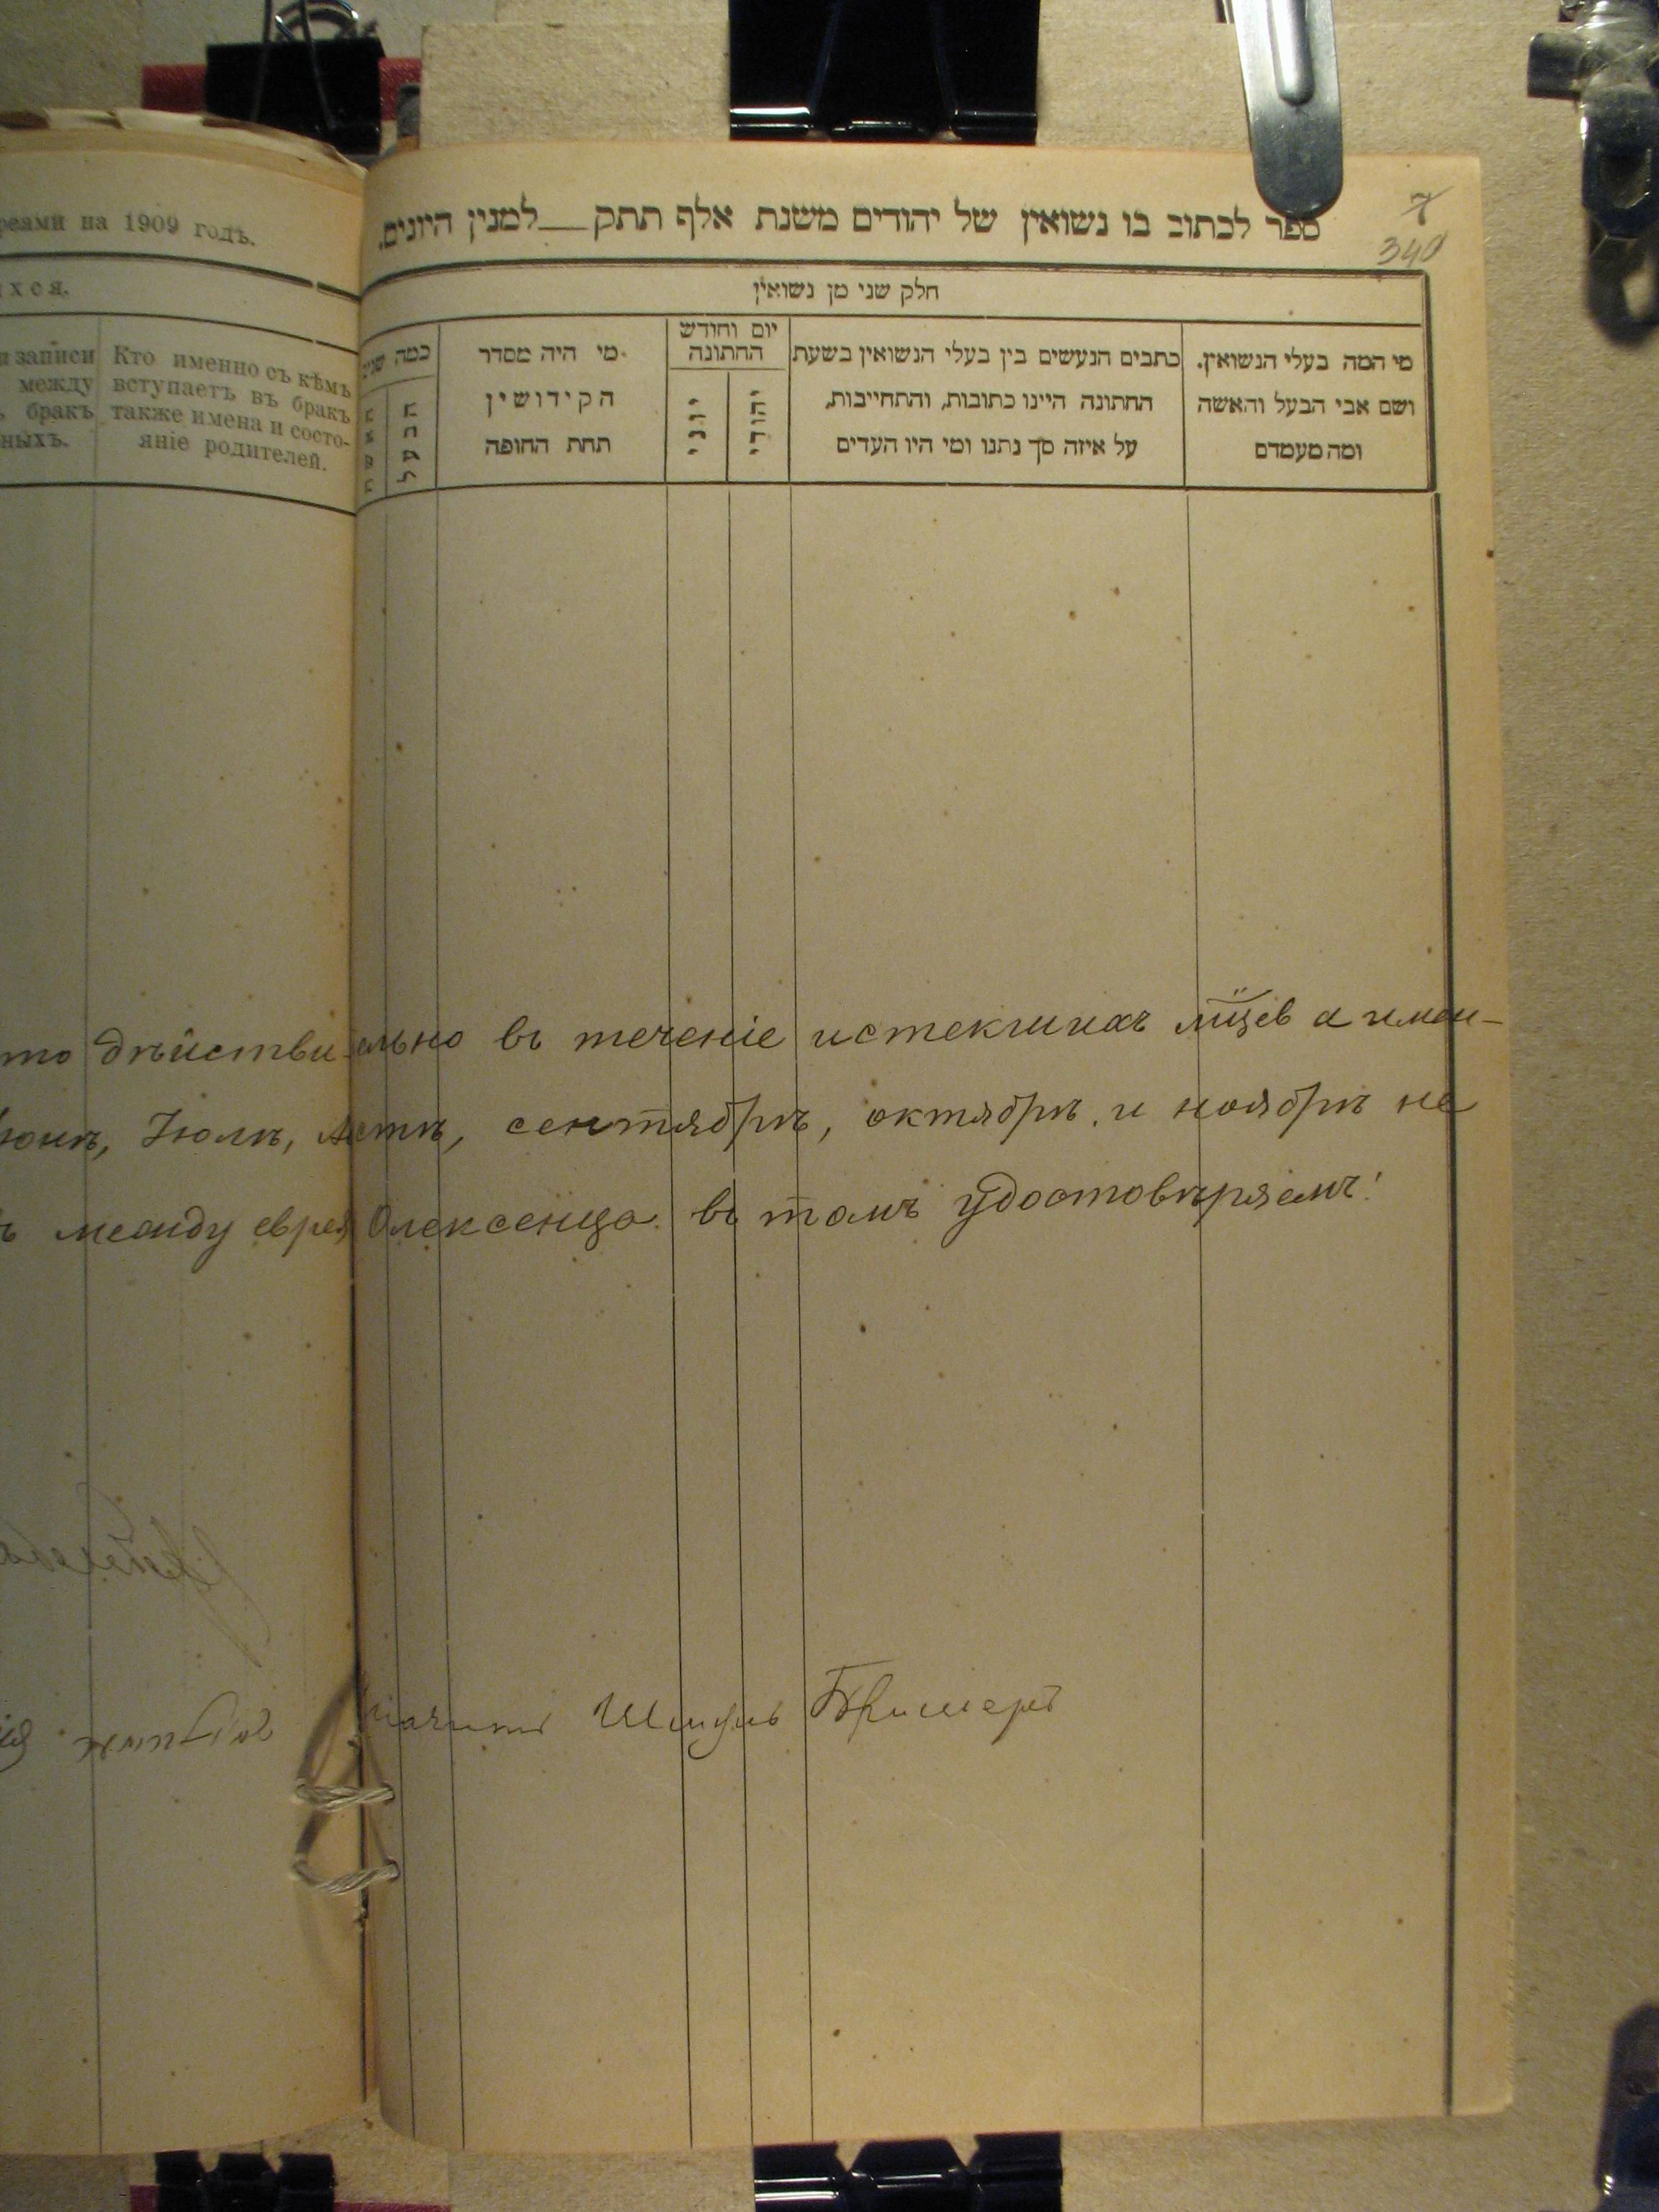 реями на 1909 годъ.
хся.
и записи
между
бракъ
ныхъ.
Кто именно съ кѣмъ
вступаетъ въ бракъ
также имена и состо-
яніе родителей.
7
340
ספר לכתוב בו נשואין של יהודים משנת אלף תתק__למנין היונים.
חלק שני מן נשואין
מי המה בעלי הנשואין.
ושם אבי הבעל והאשה
ומה מעמדם
כתבים הנעשים בין בעלי הנשואין בשעת
החתונה היינו כתובות, והתחייבות,
על איזה סך נתנו ומי היו העדים
יום וחודש
החתונה
יהודי
יוני
מי היה מסדר
הקידושין
תחת החופה
כמה שנים
הבעל
האשה
то дѣйствительно въ теченіе истекшихъ мцев а имен-
юнѣ, Іюлѣ, Австѣ, сентябрѣ, октябрѣ и ноябрѣ не
ъ между еврея Олексенца въ томъ удостовѣряемъ!
Шмуль Бримеръ